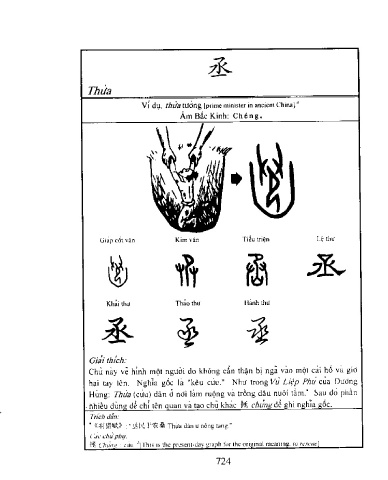 丞
Thừa
Ví dụ, thừa tướng [prime minister in ancient China]
Âm Bắc Kinh: Chéng.
Giáp cốt văn Kim văn Tiểu triện Lệ thư
Khải thư Thảo thư Hành thư
丞
Giải thích:
Chữ này vẽ hình một người do không cẩn thận bị ngã vào một cái hố và giơ
hai tay lên. Nghĩa gốc là "kêu cứu." Như trong Vũ Liệp Phú của Dương
Hùng: Thừa (cứu) dân ở nơi làm ruộng và trồng dâu nuôi tằm." Sau đó phần
nhiều dùng để chỉ tên quan và tạo chữ khác chửng để ghi nghĩa gốc.
Trích dẫn:
Thừa dân ư nông tang."
Các chú phụ:
Chửng : cứu [This is the present-day graph for the original meaning, to rescue]
724